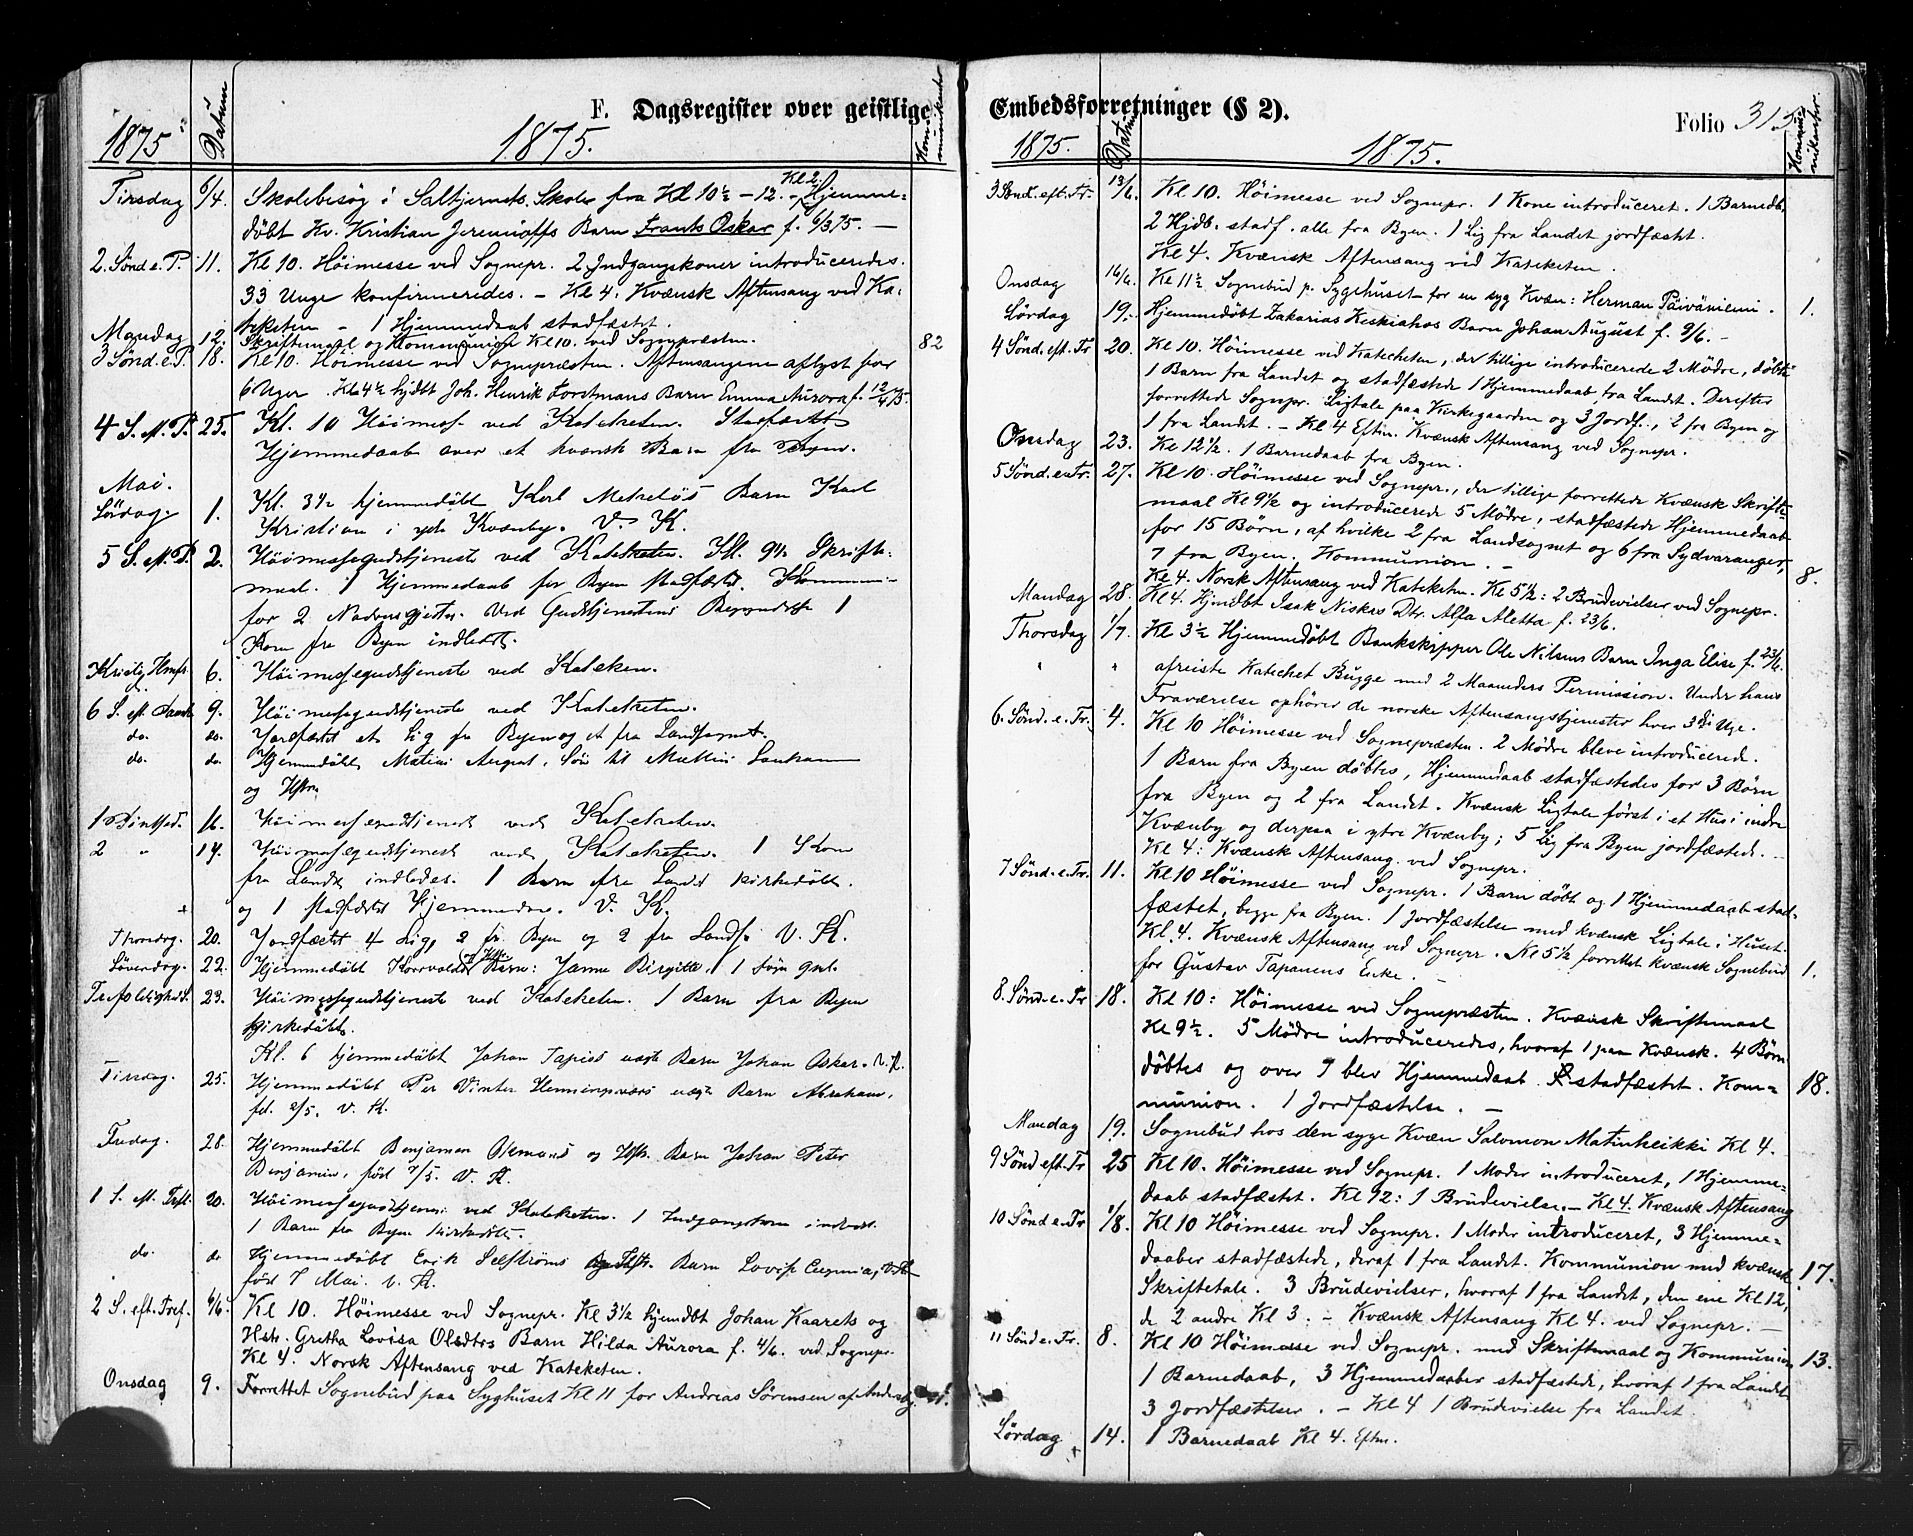 F. Dagsregister over geistlige
1875 Datum 1875. Kommunikanter
Tirsdag 6/4. Skolebesøg i Saltjernets Skole fra Kl 10½ – 12. – Kl 2 Hjemme-
døbt Kv. Kristian Jeremioffs Barn Frants Oskar f. 6/3 75. –
2. Sønd e. P. 11. Kl 10. Høimesse ved Sognepr. 2 Indgangskoner introduceredes.
33 Unge konfirmeredes. – Kl 4. Kvænsk Aftensang ved Ka-
teketen – 1 Hjemmedaab stadfæstet.
Mandag 12. Skriftemaal og Kommunion Kl 10. ved Sognepræsten. 82
3 Sønd. e. P. 18. Kl 10. Høimesse ved Sognepræsten. Aftensangene aflyst for
6 Uger. Kl 4½ hjdbt Joh. Henrik Forstmans Barn Emma Aurora f. 12/4 75.
4 S. e. P. 25. Kl. 10 Høimesse ved Kateketen. Stadfæstet
Hjemmedaab over et kvænsk Barn fra Byen.
Mai.
Lördag. 1. Kl. 3½ hjemmedøbt Karl Barn Karl
Kristian i ydr Kvænby. V. K.
5 S. e. P. 2. Høimessegudstjeneste ved Kateketen. Kl. 9½ Skrifte-
maal. 1 Hjemmedaab fra Byen stadfæstet. Kommuni-
for 2 Nadvergjester. Ved Gudstjenestens Begyndelse 1
Kone fra Byen indledet.
Kristi Hmfr. 6. Høimessegudstjeneste ved Kateketen.
6 S. eft. Paask 9. Høimessegudstjeneste ved Kateketen.
do. do. Jordfæstet et Lig fra Byen og et fra Landsognet.
do. do Hjemmedøbt Matias August, Søn til
og Hstr.
1 Pintsed. 16. Høimessegudstjeneste ved Kateketen.
2 " 17. Høimessegudstjeneste ved Kateketen. 1 Kone
fra Landet indledes. 1 Barn fra Landet kirkedøbt.
og 1 stadfæstet Hjemmedøbt. V. K.
Thorsdag. 20. Jordfæstet 4 Lig, 2 fr. Byen og 2 fra Landet V. K.
Løverdag. 22. Hjemmedøbt Barn: Janna Birgitte.
Trefoldigheds. 23. Høimessegudstjeneste ved Kateketen. 1 Barn fra Byen
kirkedøbt.
Kl. 6 hjemmedøbt Johan Tapios Barn Johan Oskar. V. K.
Tirsdag. 25. Hjemmedøbt Per Vinter Barn Abraham,
fd. 2/5. V. K.
Fredag. 28. Hjemmedøbt Benjamin og Hstr. Barn Johan Peter
Benjamin, fød 7/5. V. K.
1 S. eft. Tref. 30. Høimessegudstjeneste ved Kateketen. 1 Indgangskone
1 Barn fra Byen kirkedøbt.
do. do Hjemmedøbt Erik Selfströms Barn Lovise Eugenia, V. K.
fød 7 Mai. V. K.
2 S. eft. Tref. 6/6. Kl 10. Høimesse ved Sognepr. Kl 3½ hjemdbt Johan Kaarets og
Hstr. Gretha Lovisa Olsdtrs Barn Hilda Aurora f. 4/6. ved Sognepr.
Kl 4. Norsk Aftensang ved Kateketen.
Onsdag 9. Forrettet Sognebud paa Syghuset Kl 11 for Andreas Sørensen af Andersby. 1.
Embedsforretninger (§ 2). Folio 315
1875. Datum 1875. Kommunikanter.
3 Sønd. eft. Tr. 13/6. Kl 10. Høimesse ved Sognepr. 1 Kone introduceret. 1 Barnedb.
2 Hjdb. stadf. alle fra Byen. 1 Lig fra Landet jordfæstet.
Kl 4. Kvænsk Aftensang ved Kateketen.
Onsdag 16/6. Kl 11½ Sognebud p. Sygehuset for en syg Kvæn: Herman Päivänieni. 1.
Lørdag 19. Hjemmedøbt Zakarias Keskiahos Barn Johan August f. 9/6. –
4 Sønd. eft. Tr 20. Kl 10. Høimesse ved Katecheten, der tillige introducerede 2 Mødre, døbte
1 Barn fra Landet og stadfæstede 1 Hjemmedaab fra Landet. Derefter
forrettede Sognepr. Ligtale paa Kirkegaarden og 3 Jordf., 2 fra Byen og
1 fra Landet. – Kl 4 Eftm. Kvænsk Aftensang ved Sognepr.
Onsdag 23. Kl 12½. 1 Barnedaab fra Byen.
5 Sønd. e. Tr. 27. Kl 10. Høimesse ved Sognepr., der tillige forrettede Kvænsk Skrifte-
maal Kl 9½ og introducerede 5 Mødre, stadfæstede Hjemmedaab
for 15 Børn, af hvilke 2 fra Landsognet og 6 fra Sydvaranger,
7 fra Byen. Kommunion. – 8.
Kl 4. Norsk Aftensang ved Kateketen. Kl 5½: 2 Brudevielser ved Sognepr.
Mandag 28. Kl 4. Hjmdbt Isak Niskas Dtr. Alfa Aletta f. 23/6.
Thorsdag 1/7. Kl 3½ Hjemmedøbt Bankskipper Ole Nilsens Barn Inga Elise f. 23/6.
" " afreiste Katechet Bugge med 2 Maaneders Permission. Under hans
Fraværelse ophører de norske Aftensangstjenester hver 3die Uge.
6. Sønd. e. Tr. 4. Kl 10 Høimesse ved Sognepræsten. 2 Mødre bleve introducerede.
1 Barn fra Byen døbtes, Hjemmedaab stadfæstedes for 3 Børn
fra Byen og 2 fra Landet. Kvænsk Ligtale først i et Hus i indre
Kvænby og derpaa i ytre Kvænby; 5 Lig fra Byen jordfæstede. –
Kl 4: Kvænsk Aftensang ved Sognepr.
7 Sønd. e. Tr. 11. Kl 10 Høimesse ved Sognepr. 1 Barn døbt og 1 Hjemmedaab stad-
fæstet, begge fra Byen. 1 Jordfæstelse med kvænsk Ligtale i Huset.
Kl. 4. Kvænsk Aftensang ved Sognepr. Kl 5½ forrettet kvænsk Sognebud
for Gustav Tapanens Enke – 1.
8. Sønd. e. Tr 18. Kl 10: Høimesse ved Sognepræsten. Kvænsk Skriftemaal
Kl 9½. 5 Mødre introduceredes, hvoraf 1 paa Kvænsk. 4 Børn
døbtes og over 7 blev Hjemmedaab stadfæstet. Kom- 18.
munion. 1 Jordfæstelse. –
Mandag 19. Sognebud hos den syge Kvæn Salomon Matinheikki Kl 4.
9 Sønd eft. Tr 25 Kl 10. Høimesse ved Sognepr. 1 Moder introduceret, 1 Hjemme-
daab stadfæstet. Kl 12: 1 Brudevielse. – Kl 4. Kvænsk Aftensang
10 Sønd e. Tr 1/8. Kl 10 Høimesse ved Sognepr. 1 Moder introduceret, 3 Hjemme-
daaber stadfæstede, deraf 1 fra Landet. Kommunion med kvænsk 17.
Skriftetale. 3 Brudevielser, hvoraf 1 fra Landet, den ene Kl 12,
de 2 andre Kl 3. – Kvænsk Aftensang Kl 4. ved Sognepr. –
11 Sønd e. Tr. 8. Kl 10 Høimesse ved Sognepr. med Skriftemaal og Kommunion 13.
1 Barnedaab, 3 Hjemmedaaber stadfæstede, hvoraf 1 fra Landet
3 Jordfæstelser. – Kl 4 1 Brudevielse fra Landet.
Lørdag 14. 1 Barnedaab Kl 4. Eftm.